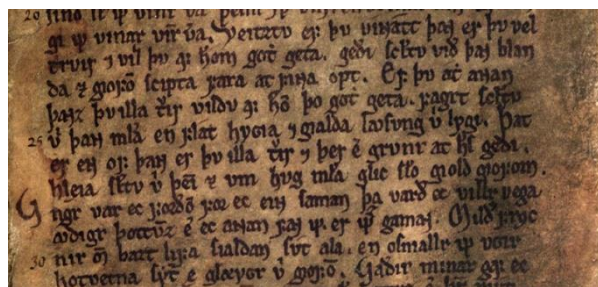 20
gi ꝩ vinar vinr v̄a. Veiztu ef þu vin att þañ er þv vel
trvir ⁊ vil þv af hom gót geta. geði ſcltv við þañ blan
da ⁊ giofō ſcipta fara at finna opt. Ef þv át aɴan
þañz þv illa tͥr vildv af hō þo gót geta. fagrt ſcltv
25 v̇ þañ mla en flat hyɢia ⁊ gialda laꜹſung v̇ lygi. Þat
er en of þañ er þv illa tͥr ⁊ þer ē grunr at hͣ geði.
hleia ſcltv v̇ þeī ⁊ um hug mla glic ſlo giold giofom.
Ungr var ec forðō fór ec ein ſaman þa varð ec villr vega
ꜹðigr þottvmz ē ec aɴan faɴ ꝩ. er ꝩͣ gaman. Mild frꜹc
30 nir m̄ bazt lifa ſialdan ſvt ala. en oſniallr ꝩ vɢir
hotvetna ſyt̄ ē glꜹɢvr v̇ giofō. Vaðir minar gaf ec